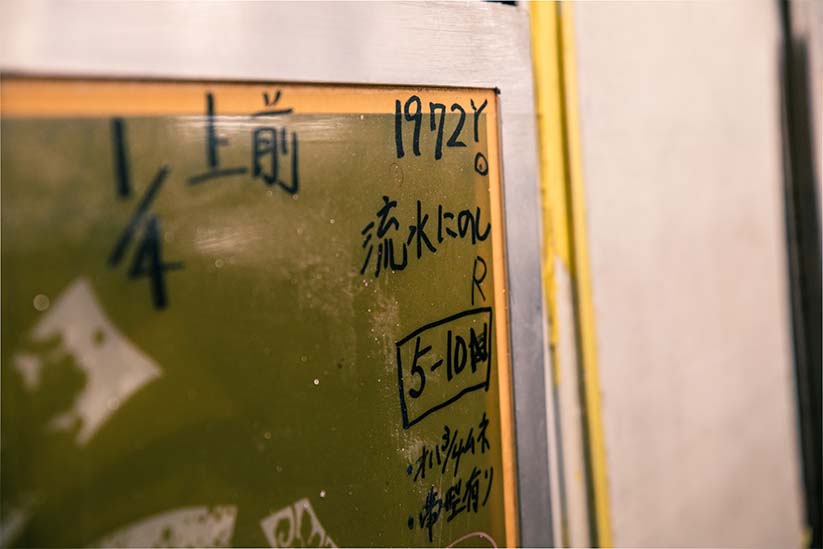 1/4 上前
1972Y
流水にのし
R
5-10
・オハ3/4ムネ
・帯型有り